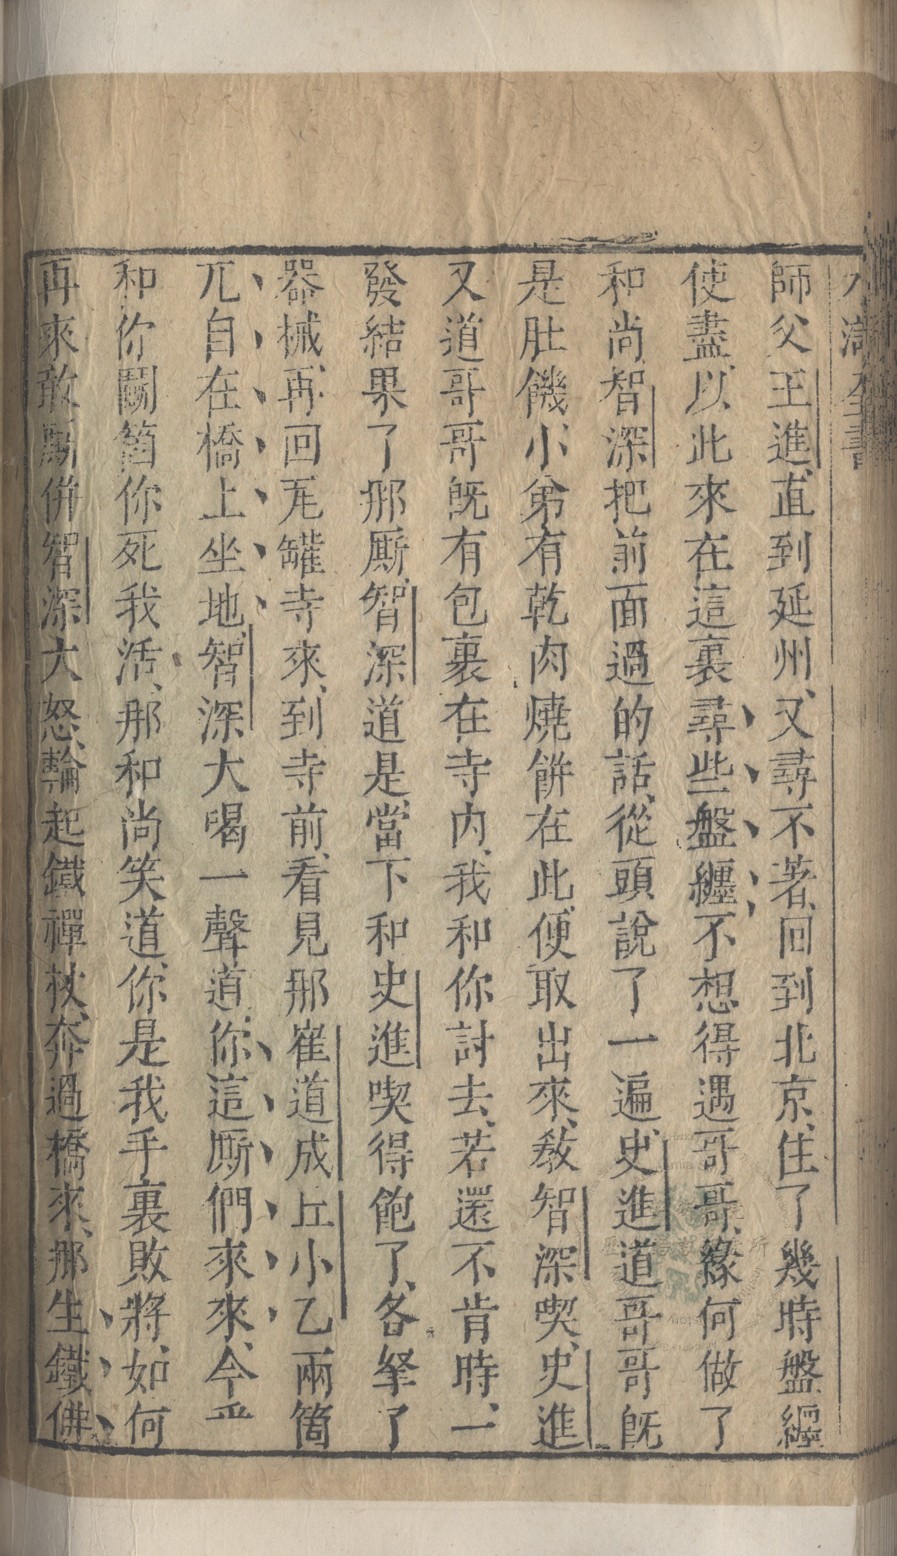 水滸全書
師父王進、直到延州、又尋不著、回到北京、住了幾時盤纏
使盡、以此來在這裏尋些盤纏不想得遇哥哥、緣何做了
和尚、智深把前面過的話、從頭說了一遍、史進道哥哥旣
是肚饑、小弟有乾肉燒餅在此、便取出來、敎智深喫、史進
又道哥哥旣有包裹在寺內、我和你討去、若還不肯時、一
發結果了那厮、智深道是、當下和史進喫得飽了、各拏了
器械、再回瓦罐寺來、到寺前、看見那崔道成丘小乙兩箇
兀自在橋上坐地、智深大喝一聲道、你這厮們來來、今番
和你鬭箇你死我活、那和尚笑道、你是我手裏敗將、如何
再來敢厮併、智深大怒、輪起鐵禪杖、奔過橋來、那生鐵佛